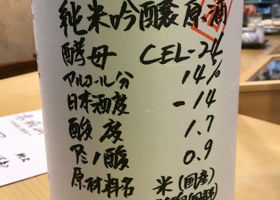 純米吟醸原酒
酵母 CEL-24
アルコール分 14%
日本酒度 -14
酸度 1.7
アミノ酸 0.9
原材料名 米(国産)